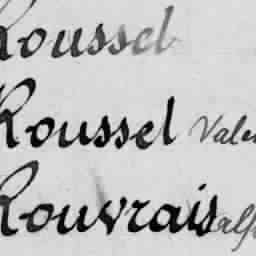 Roussel
Roussel Vale
Rouvrais alf